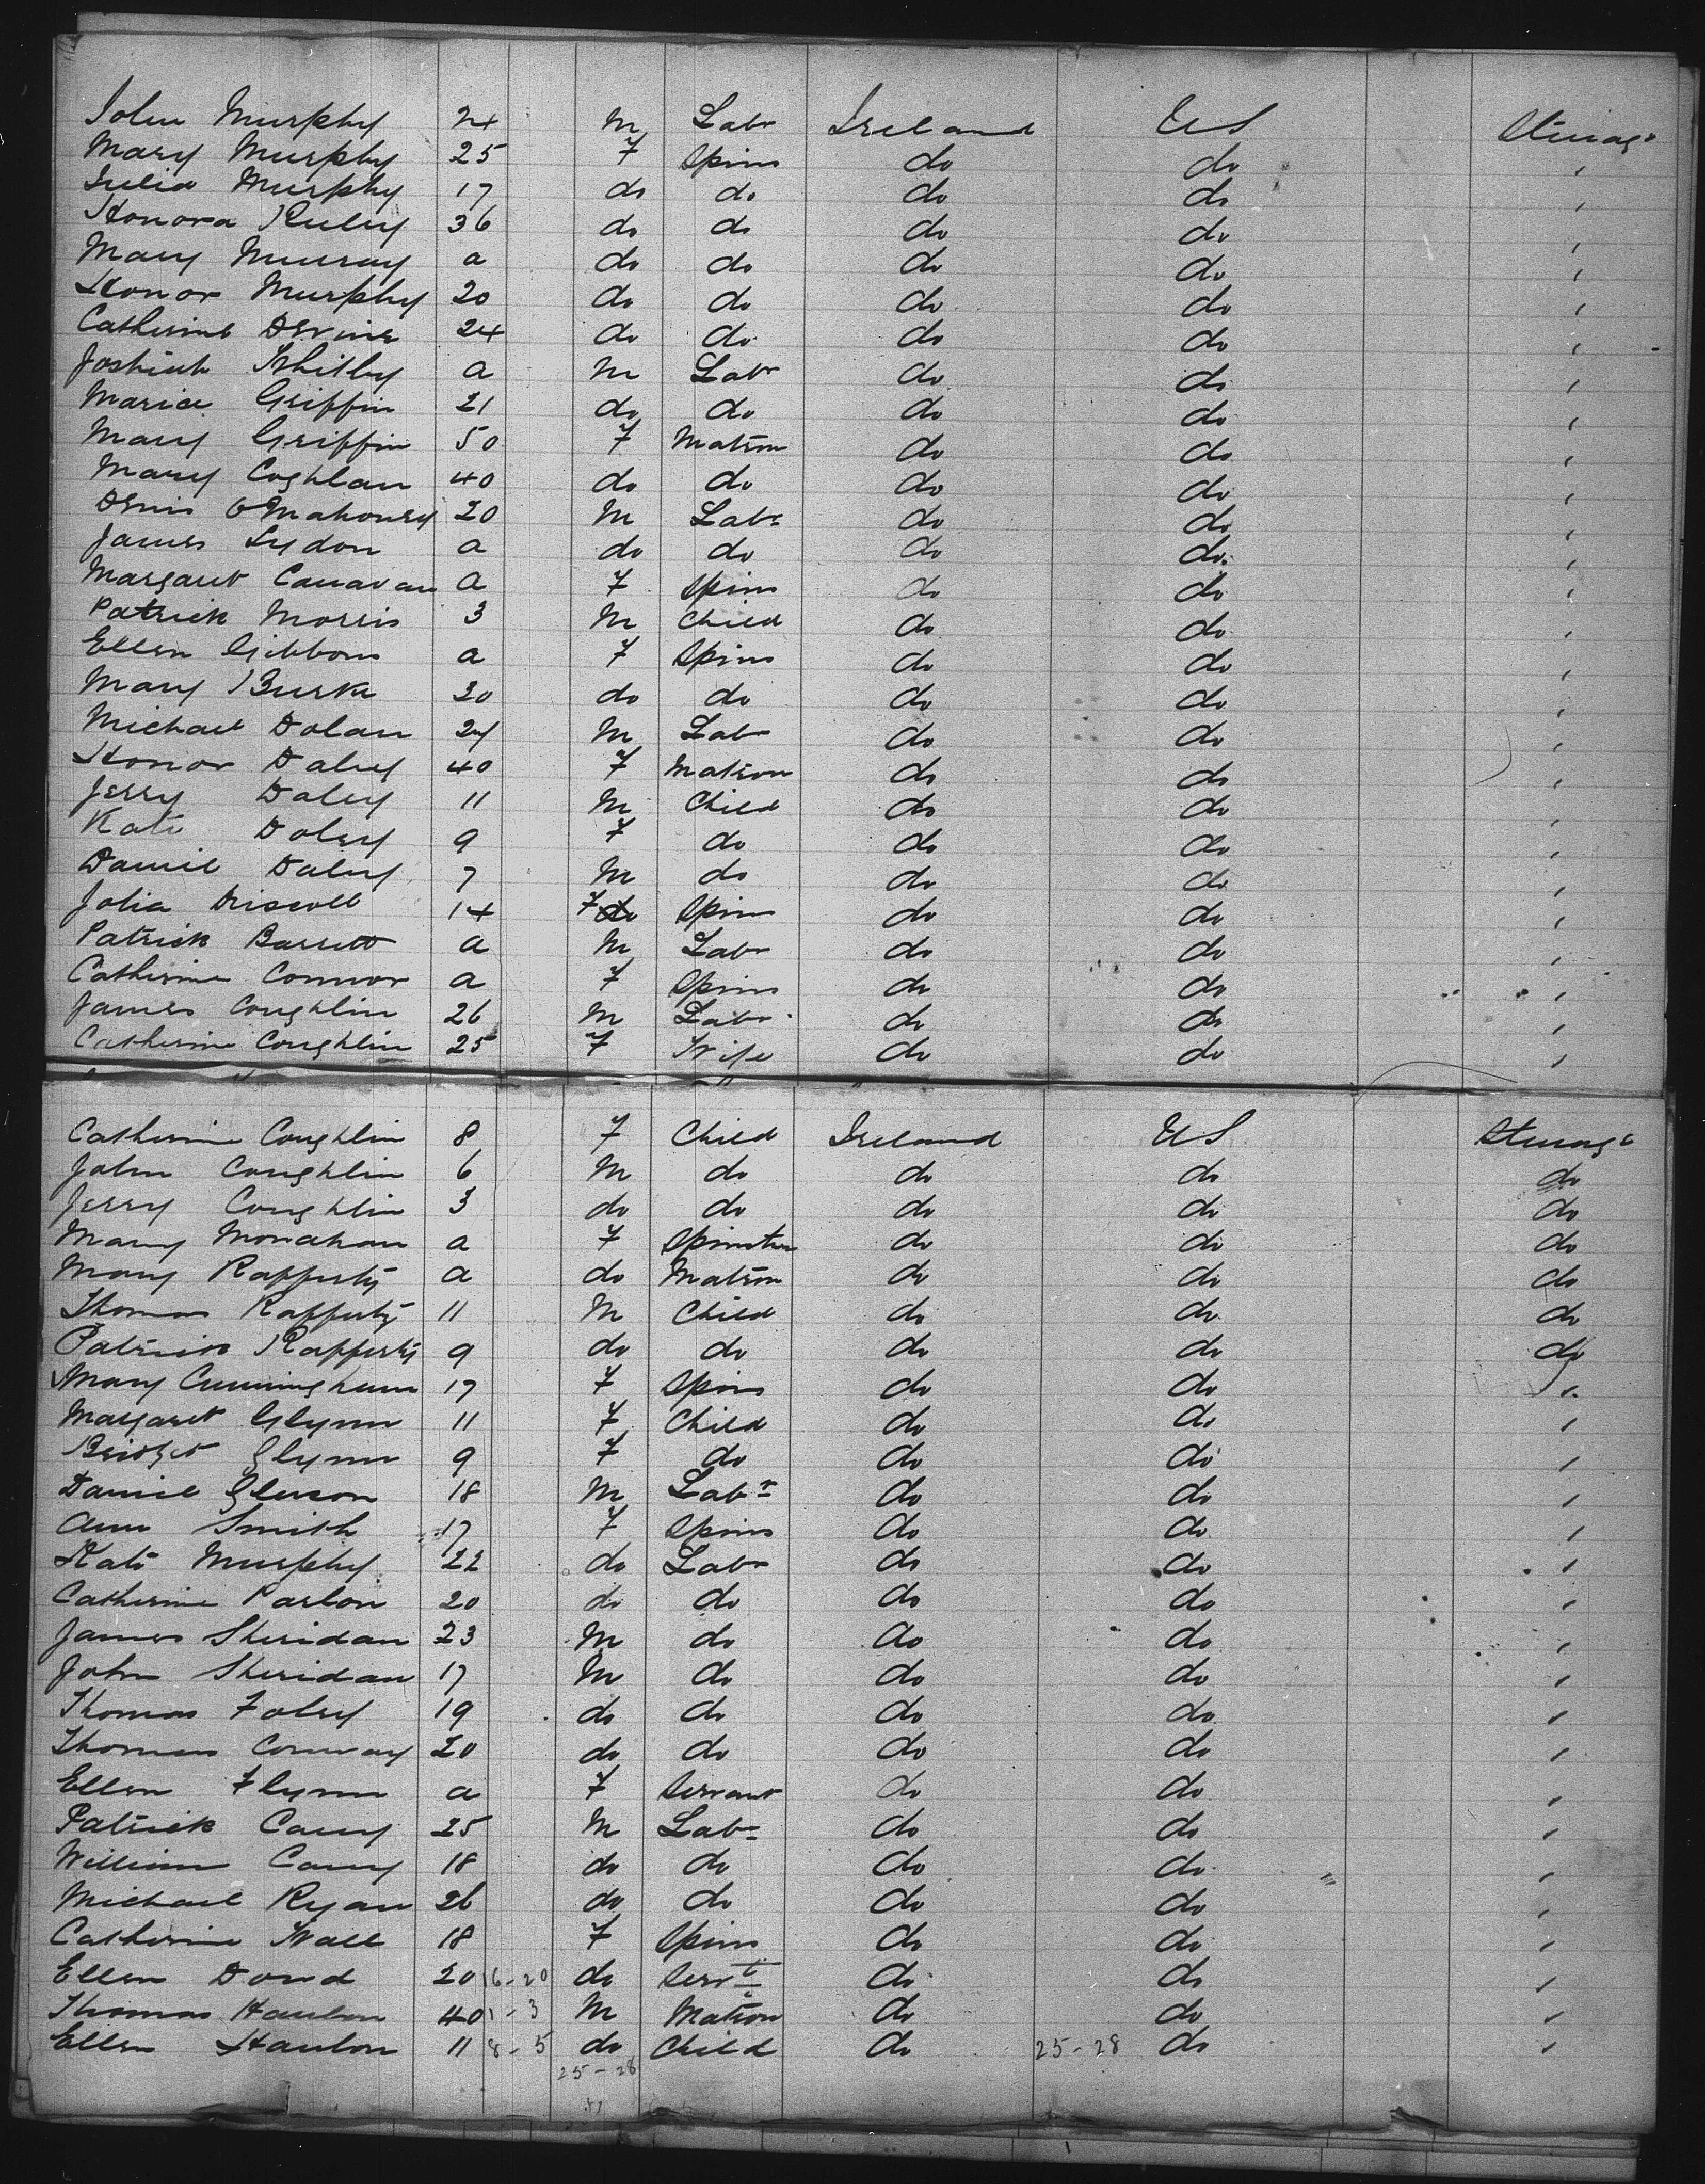 John Murphy 24 M Labr Ireland US Steerage
Mary Murphy 25 F Spins do do "
Julia Murphy 17 do do do do "
Honora Ruley 36 do do do do "
Mary Murray a do do do do "
Honor Murphy 20 do do do do "
Catherine Devine 24 do do do do "
Joshiah Whitby a M Labr do do "
Maria Griffin 21 do do do do "
Mary Griffin 50 F Matron do do "
Mary Coghlan 40 do do do do "
Denis O'Mahoney 20 M Labr do do "
James Lydon a do do do do "
Margaret Canavan a F Spins do do "
Patrick Morris 3 M Child do do "
Ellen Gibbons a F Spins do do "
Mary Burke 20 do do do do "
Michael Dolan 24 M Labr do do "
Honor Daley 40 F Matron do do "
Jerry Daley 11 M Child do do "
Kate Daley 9 F do do do "
Daniel Daley 7 M do do do "
Johia Driscoll 14 F do Spins do do "
Patrick Barrett a M Labr do do "
Catherine Connor a F Spins do do "
James Coughlin 26 M Labr do do "
Catherine Coughlin 25 F Wife do do "
Catherine Coughlin 8 F Child Ireland US Steerage
John Coughlin 6 M do do do do
Jerry Coughlin 3 do do do do do
Mary Monahan a F Spinster do do do
Mary Rafferty a do Matron do do do
Thomas Rafferty 11 M Child do do do
Patrick Rafferty 9 do do do do do
Mary Cunningham 17 F Spins do do "
Margaret Glynn 11 F Child do do "
Bridget Glynn 9 F do do do "
Daniel Gleeson 18 M Labr do do "
Ann Smith 17 F Spins do do "
Kate Murphy 22 do Labr do do "
Catherine Parlon 20 do do do do "
James Sheridan 23 M do do do "
John Sheridan 17 M do do do "
Thomas Foley 19 do do do do "
Thomas Conway 20 do do do do "
Ellen Flynn a F Servant do do "
Patrick Carey 25 M Labr do do "
William Carey 18 do do do do "
Michael Ryan 26 do do do do "
Catherine Wall 18 F Spins do do "
Ellen Dowd 20 16-20 do Servt do do "
Thomas Hanlon 40 1-3 M Matron do do "
Ellen Hanlon 11 8-5 do Child do 25-28 do "
25-28